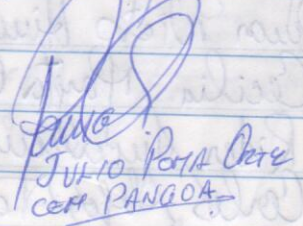 JULIO POMA ORTE
CEM PANGOA